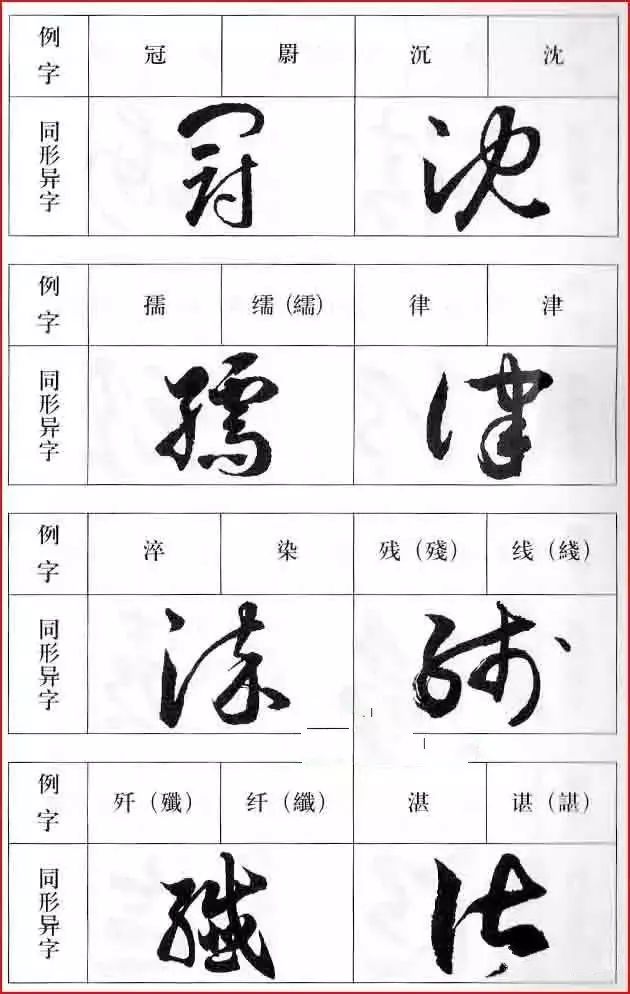 例字 冠 罻 沉 沈
同形异字
例字 孺 繻（繻） 律 津
同形异字
例字 淬 染 残（殘） 线（綫）
同形异字
例字 歼（殲） 纤（纖） 湛 谌（諶）
同形异字